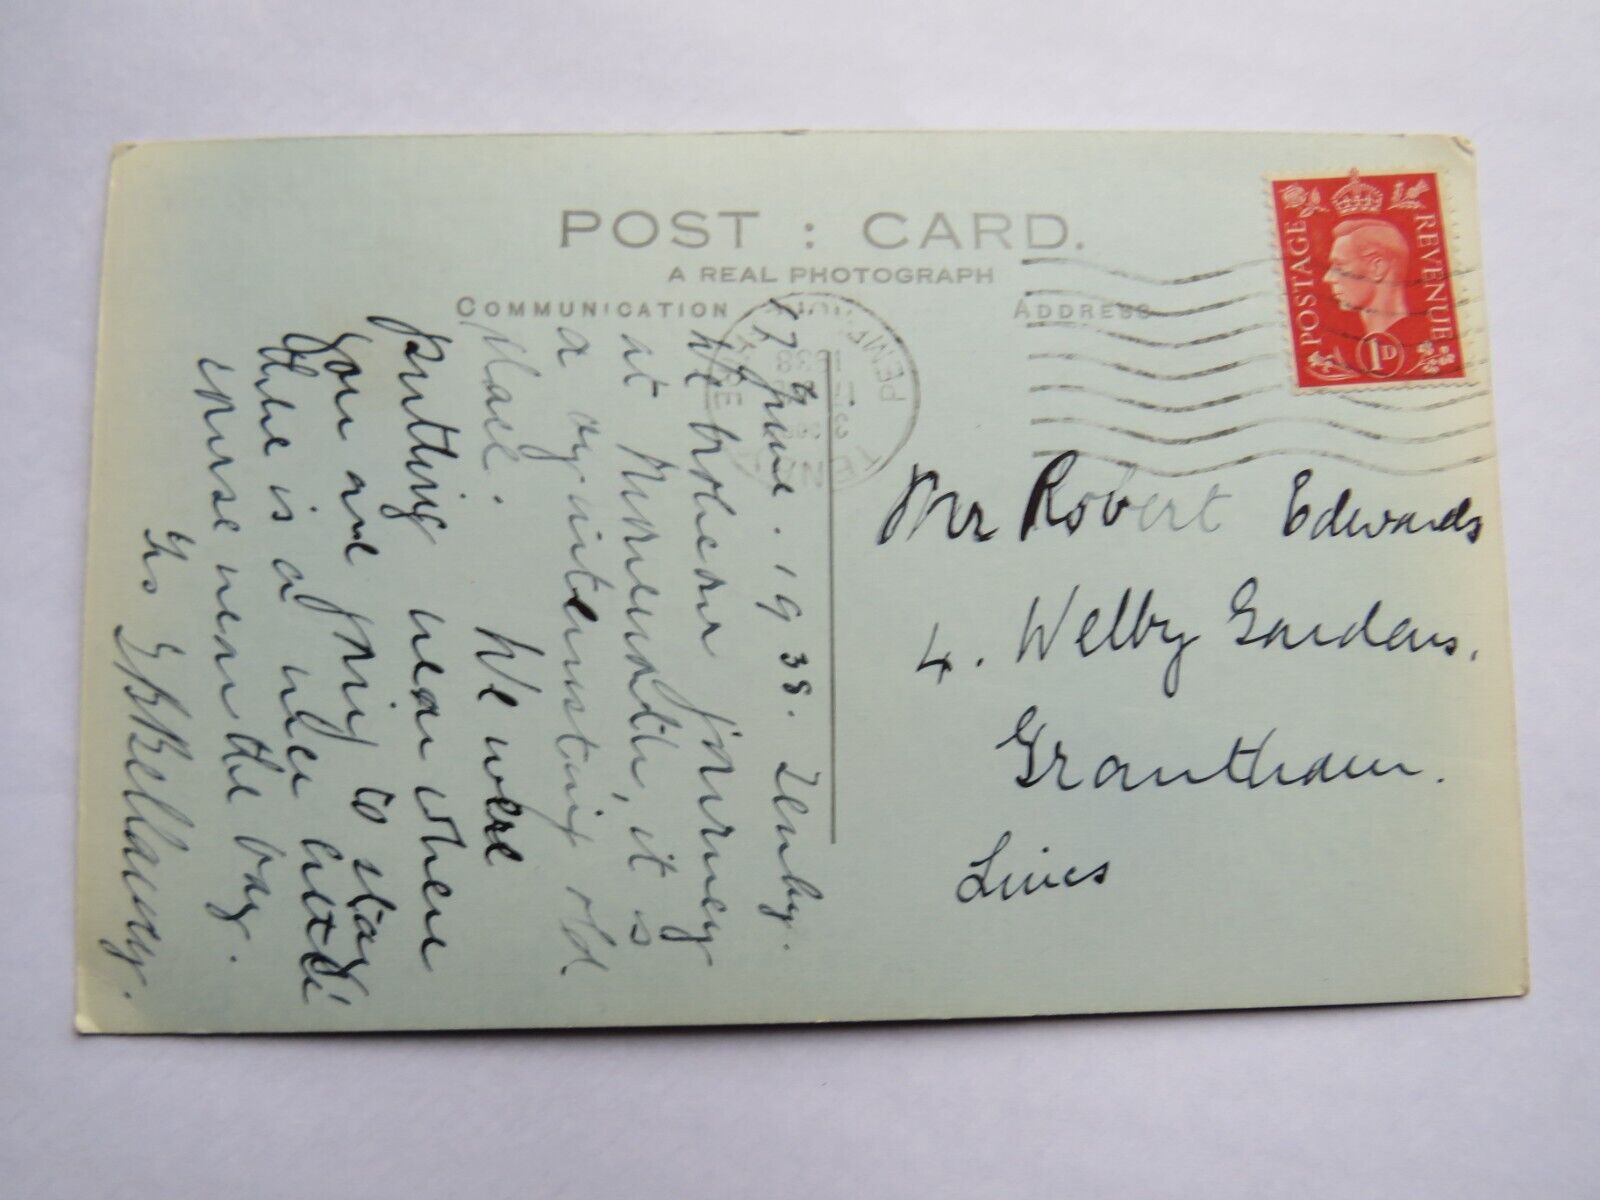 POST : CARD.
A REAL PHOTOGRAPH
COMMUNICATION
ADDRESS
POSTAGE REVENUE
1D
TENBY
3
17
1938
PEMBROKESHIRE
17th June. 1938. Tenby.
We broke our journey
at, it is
a v. interesting old
place. We were
putting near where
you are going to stay
there is a nice little
course near the bay.
Yrs G B Bellamy.
Mr Robert Edwards
4. Welby Gardens.
Grantham.
Lincs